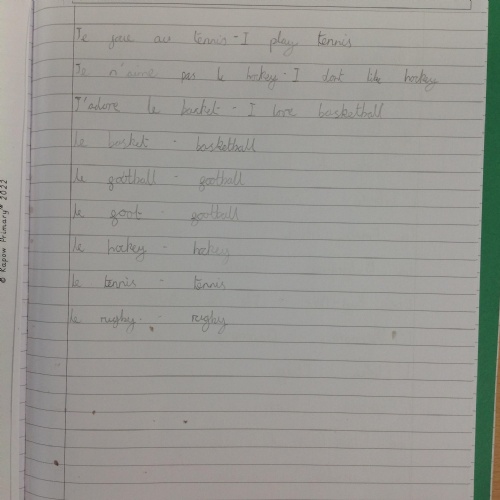 Je joue au tennis - I play tennis
Je n'aime pas le hockey - I dont like hockey
J'adore le basket - I love basketball
le basket - basketball
le football - football
le foot - football
le hockey - hockey
le tennis - tennis
le rugby - rugby
© Kapow Primary™ 2022